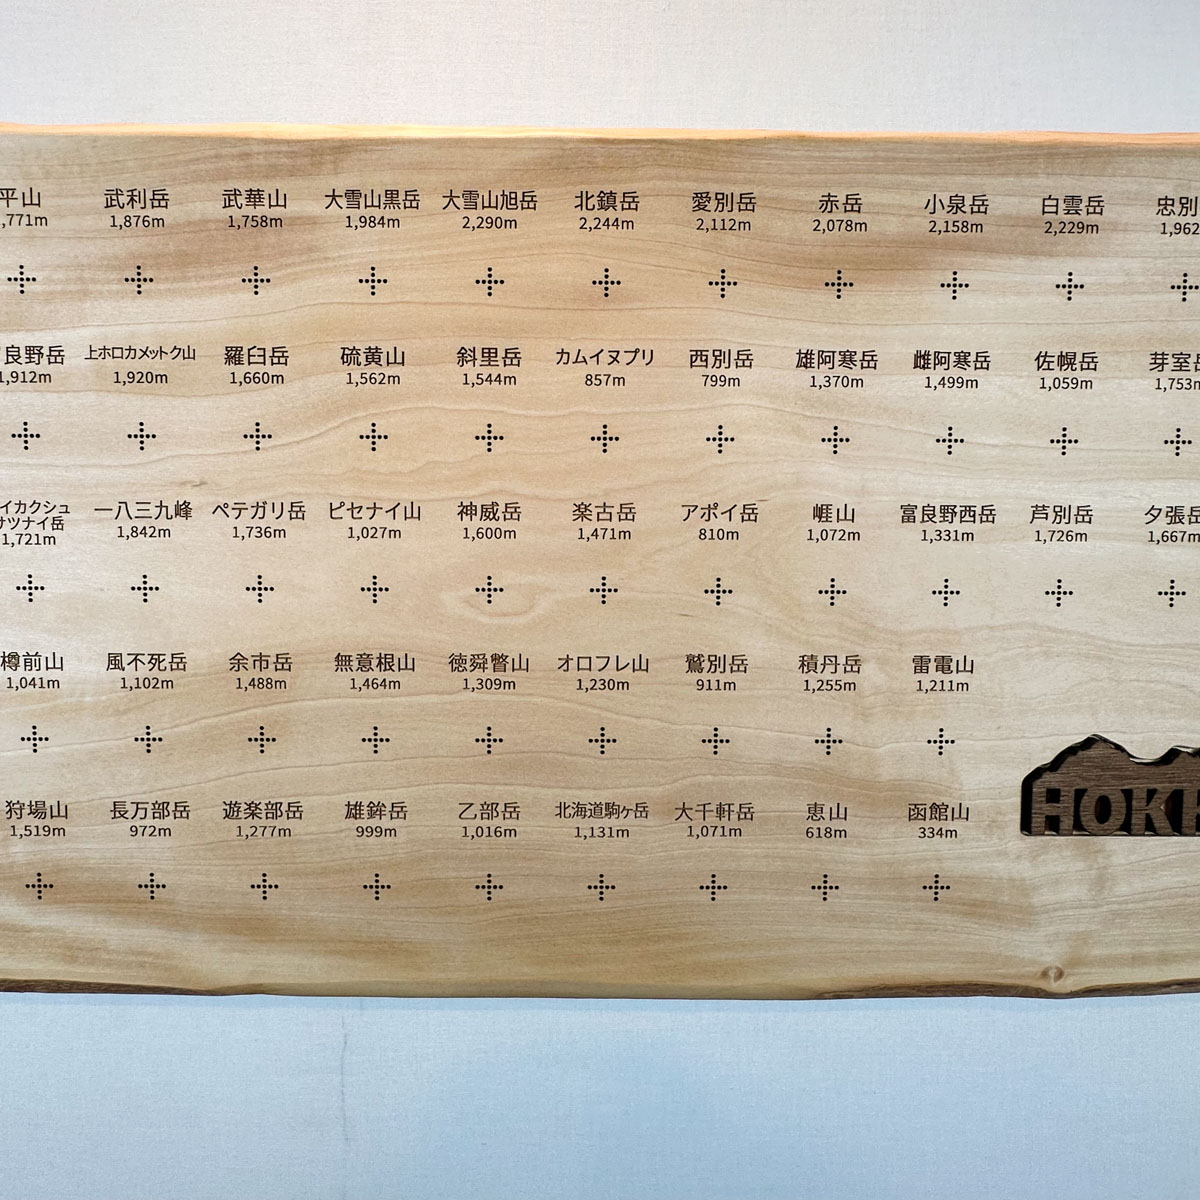 平山 武利岳 武華山 大雪山黒岳 大雪山旭岳 北鎮岳 愛別岳 赤岳 小泉岳 白雲岳 忠別
,771m 1,876m 1,758m 1,984m 2,290m 2,244m 2,112m 2,078m 2,158m 2,229m 1,962
良野岳 上ホロカメットク山 羅臼岳 硫黄山 斜里岳 カムイヌプリ 西別岳 雄阿寒岳 雌阿寒岳 佐幌岳 芽室岳
1,912m 1,920m 1,660m 1,562m 1,544m 857m 799m 1,370m 1,499m 1,059m 1,753m
イカクシュ
ナツナイ岳 一八三九峰 ペテガリ岳 ピセナイ山 神威岳 楽古岳 アポイ岳 崕山 富良野西岳 芦別岳 夕張岳
1,721m 1,842m 1,736m 1,027m 1,600m 1,471m 810m 1,072m 1,331m 1,726m 1,667m
樽前山 風不死岳 余市岳 無意根山 徳舜瞥山 オロフレ山 鷲別岳 積丹岳 雷電山
1,041m 1,102m 1,488m 1,464m 1,309m 1,230m 911m 1,255m 1,211m
狩場山 長万部岳 遊楽部岳 雄鉾岳 乙部岳 北海道駒ヶ岳 大千軒岳 恵山 函館山
1,519m 972m 1,277m 999m 1,016m 1,131m 1,071m 618m 334m
HOKK